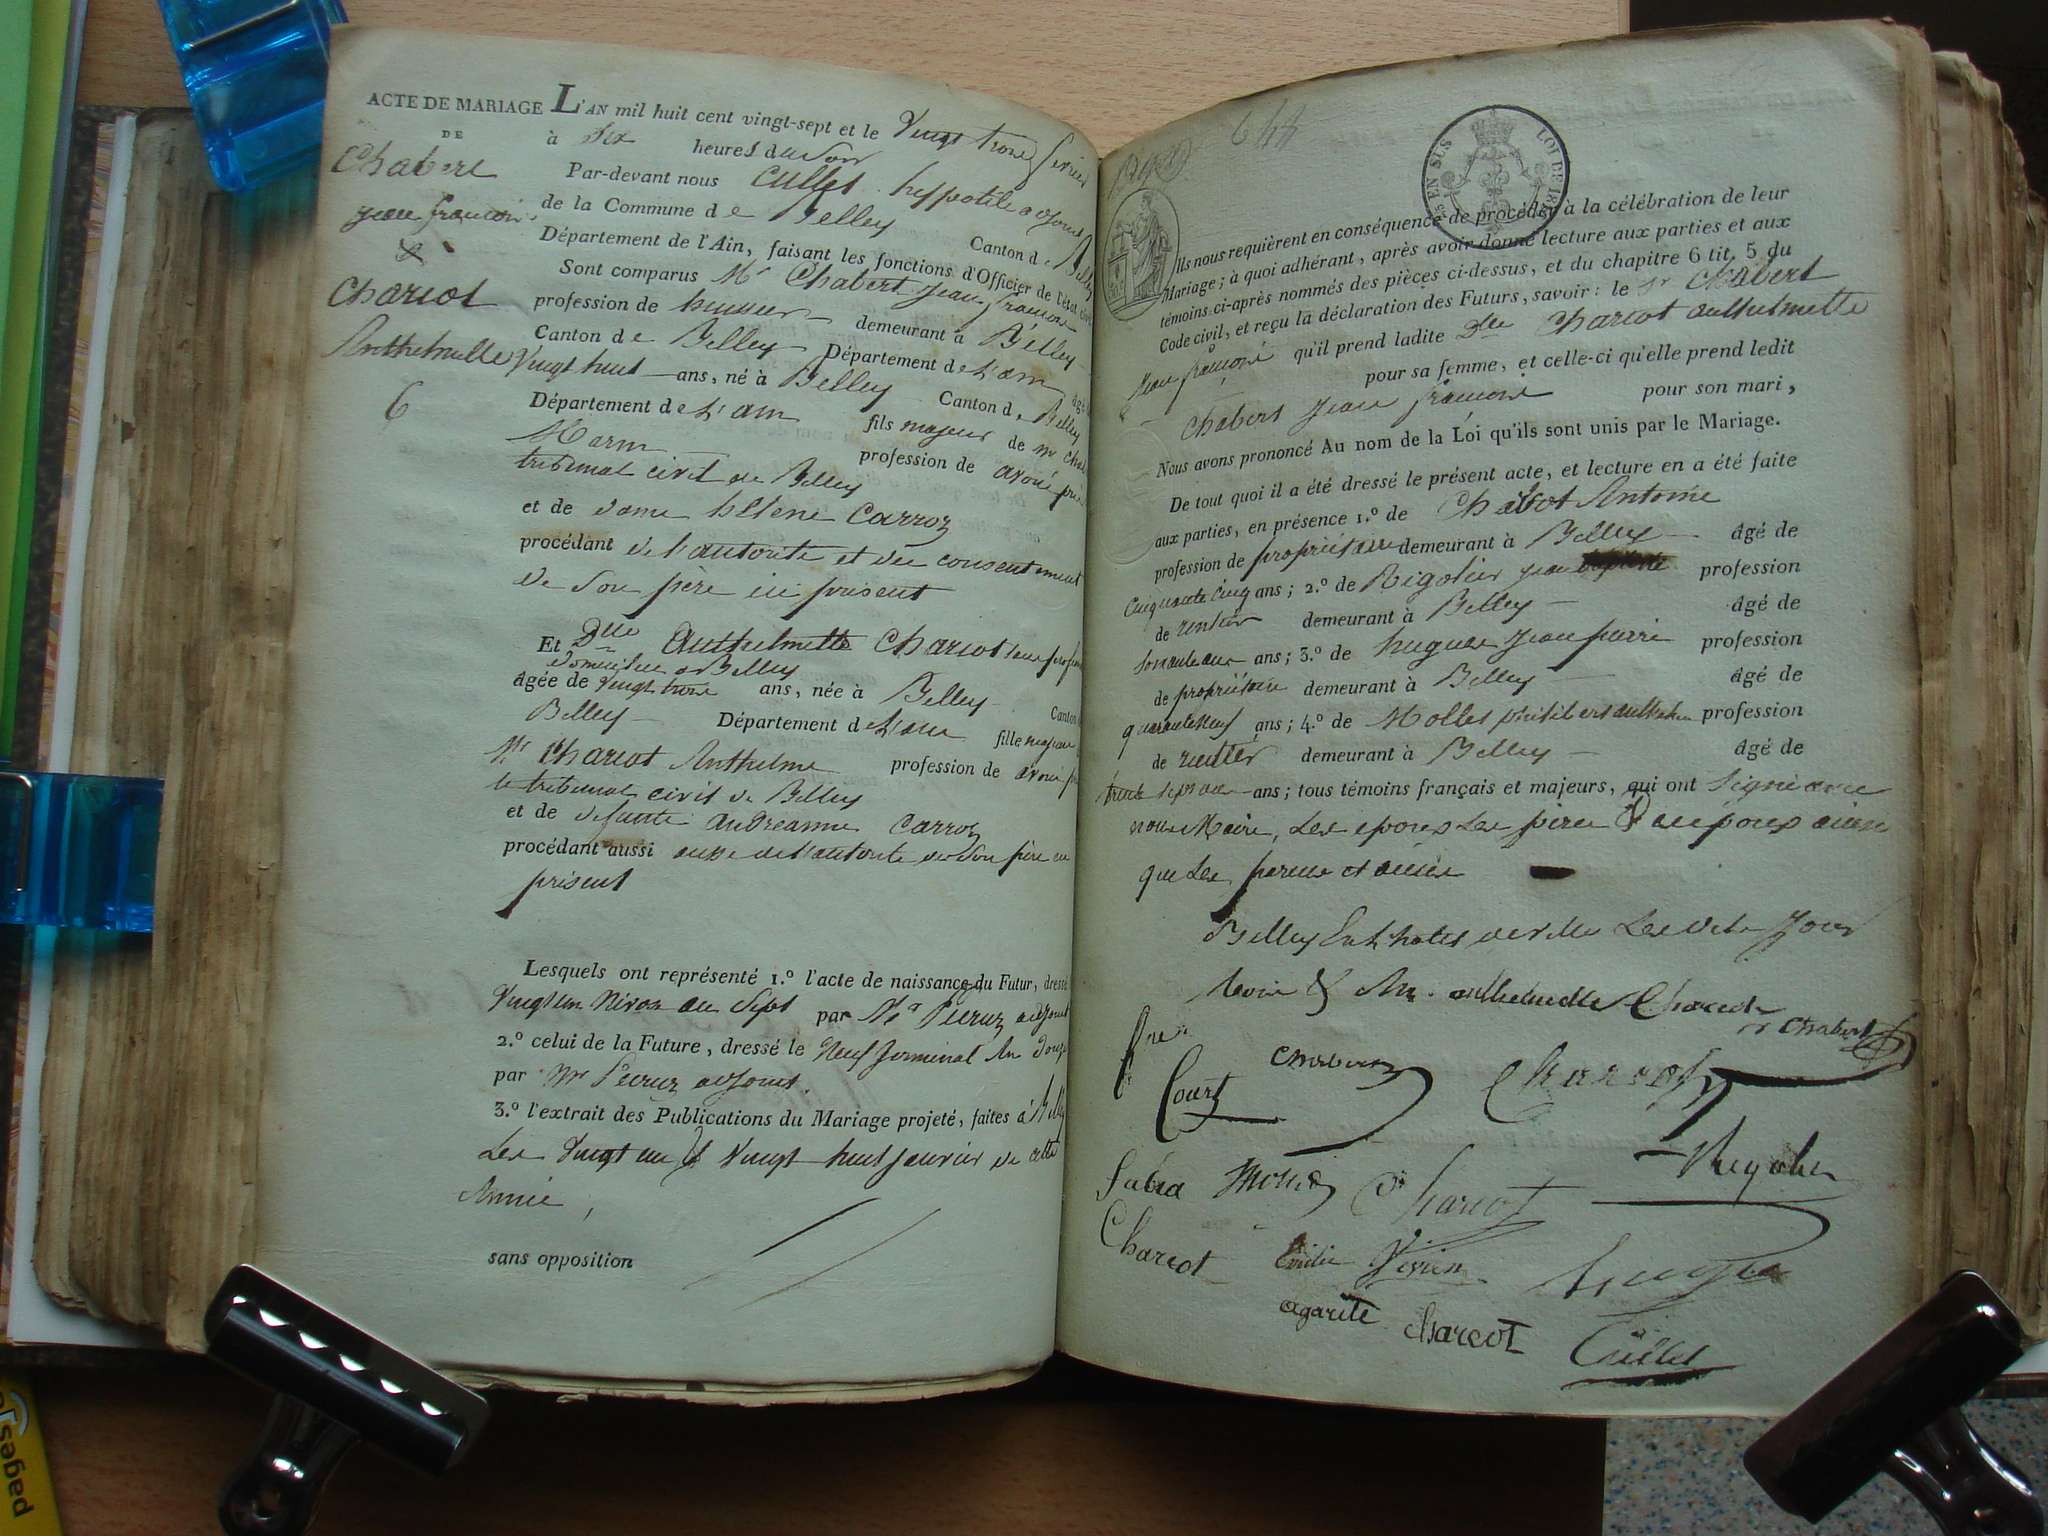 ACTE DE MARIAGE
DE
Chabert
jean françois
&
Charcot
Anthelmette
6
L'AN mil huit cent vingt-sept et le vingt trois fevrier
à six heures du soir
Par-devant nous Cullet hyppolite adjoint
de la Commune de Belley Canton de Belley
Département de l'Ain, faisant les fonctions d'Officier de l'état civil
Sont comparus Mr Chabert jean françois
profession de huissier demeurant à Belley
Canton de Belley Département de l'ain âgé
Vingt huit ans, né à Belley Canton de Belley
Département de l'ain fils majeur de mr
Marin profession de avoué près
tribunal civil de Belley
et de dame hélène Carroz
procédant de l'autorité et du consentement
de son père ici présent
Et Dlle Anthelmette Charcot sans
domiciliée à Belley
âgée de vingt trois ans, née à Belley Canton
Belley Département de l'ain fille majeure
Mr Charcot Anthelme profession de avoué
le tribunal civil de Belley
et de defunte andréanne Carroz
procédant aussi de l'autorité de son père
présent
Lesquels ont représenté 1.º l'acte de naissance du Futur, dressé
Vingt un Nivoz an Sept par Mr Peeruz adjoint
2.º celui de la Future, dressé le Neuf Germinal An douze
par mr Peeruz adjoint
3.º l'extrait des Publications du Mariage projeté, faites à Belley
Les Vingt un & Vingt huit janvier de cette
Année,
sans opposition
644
35 EN SUS LOI DE 18
Ils nous requièrent en conséquence de procéder à la célébration de leur
Mariage; à quoi adhérant, après avoir donné lecture aux parties et aux
témoins ci-après nommés des pièces ci-dessus, et du chapitre 6 tit. 5 du
Code civil, et reçu la déclaration des Futurs, savoir: le sr Chabert
jean françois qu'il prend ladite Dlle Charcot anthelmette
pour sa femme, et celle-ci qu'elle prend ledit
Chabert jean françois pour son mari,
Nous avons prononcé Au nom de la Loi qu'ils sont unis par le Mariage.
De tout quoi il a été dressé le présent acte, et lecture en a été faite
aux parties, en présence 1.º de Antoine
profession de propriétaire demeurant à Belley âgé de
Cinquante cinq ans; 2.º de Rigolier jean profession
de rentier demeurant à Belley âgé de
ans; 3.º de hugues jean pierre profession
de propriétaire demeurant à Belley âgé de
quarante neuf ans; 4.º de Mollet philibert profession
de rentier demeurant à Belley âgé de
trente ans; tous témoins français et majeurs, qui ont signé avec
nous Maire, Les époux Les pères des époux ainsi
que Les parens et amis
Belley En L'hotel de ville Les dits Jour
mois & An. anthelmette Charcot
Chabert
Court Chabert Charcot
Rigolier
Sabra Charcot
Charcot Emilie
agarite Charcot Cullet